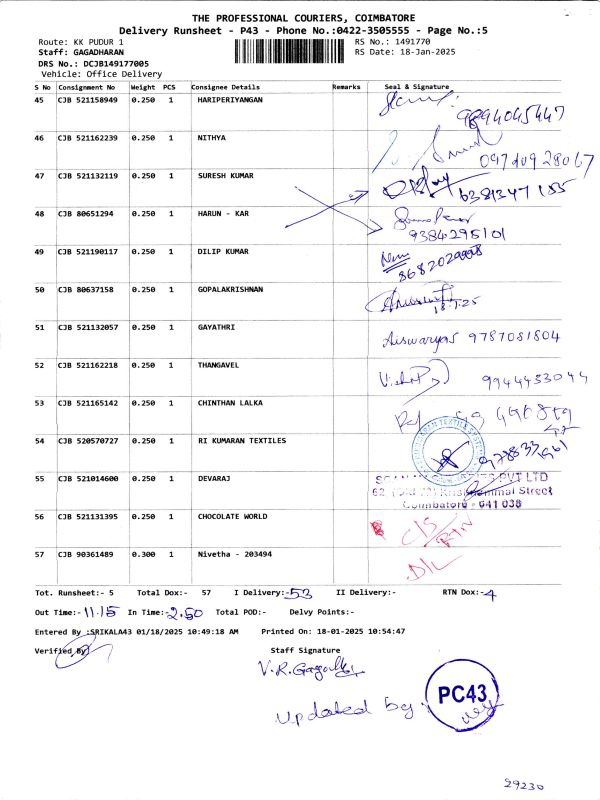 THE PROFESSIONAL COURIERS, COIMBATORE
Delivery Runsheet - P43 - Phone No.:0422-3505555 - Page No.:5
Route: KK PUDUR 1 RS No.: 1491770
Staff: GAGADHARAN RS Date: 18-Jan-2025
DRS No.: DCJB149177005
Vehicle: Office Delivery
S No Consignment No Weight PCS Consignee Details Remarks Seal & Signature
45 CJB 521158949 0.250 1 HARIPERIYANGAN 9894045447
46 CJB 521162239 0.250 1 NITHYA
47 CJB 521132119 0.250 1 SURESH KUMAR 6381347185
48 CJB 80651294 0.250 1 HARUN - KAR 9384295101
49 CJB 521190117 0.250 1 DILIP KUMAR
50 CJB 80637158 0.250 1 GOPALAKRISHNAN 18.1.25
51 CJB 521132057 0.250 1 GAYATHRI Aiswarya 9787081804
52 CJB 521162218 0.250 1 THANGAVEL 9944433044
53 CJB 521165142 0.250 1 CHINTHAN LALKA
54 CJB 520570727 0.250 1 RI KUMARAN TEXTILES
55 CJB 521014600 0.250 1 DEVARAJ PVT LTD
Street
Coimbatore - 641 038
56 CJB 521131395 0.250 1 CHOCOLATE WORLD C/S RTN
57 CJB 90361489 0.300 1 Nivetha - 203494 D/L
Tot. Runsheet:- 5 Total Dox:- 57 I Delivery:-53 II Delivery:- RTN Dox:-4
Out Time:-11.15 In Time:-2.50 Total POD:- Delvy Points:-
Entered By :SRIKALA43 01/18/2025 10:49:18 AM Printed On: 18-01-2025 10:54:47
Verified By Staff Signature
V.R.Gagadh
Updated by: PC43
29230